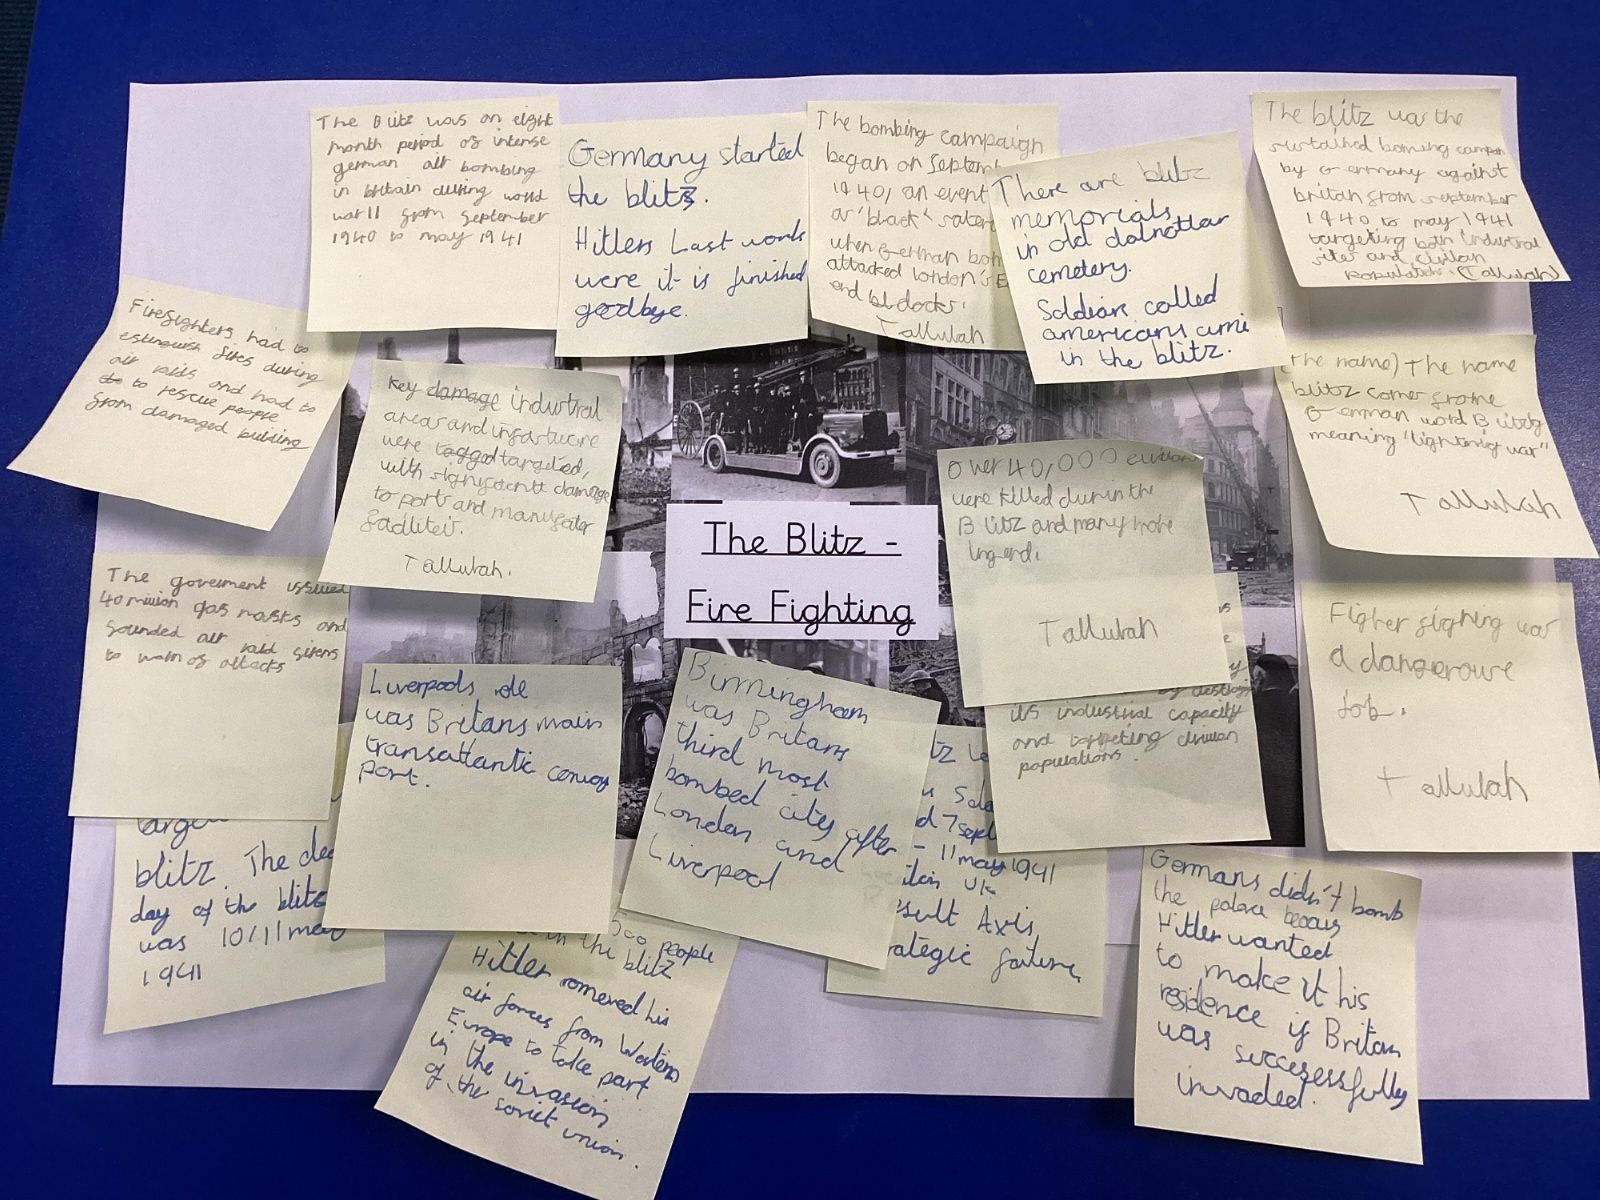 The Blitz was an eight
month period of intense
german air bombing
in britain during world
war II from September
1940 to may 1941
Germany started
the blitz.
Hitlers Last words
were it is finished
goodbye.
The bombing campaign
began on Septem
1940, an event
or 'black'
when German bom
attacked london's E
end
Tallulah
There are blitz
memorials
in old dalnottar
cemetery.
Soldiers called
americans
in the blitz.
The blitz was the
sustained boming campain
by Germany against
britan from september
1940 to may 1941
targeting both industrial
sites and civilian
population. (Tallulah)
Firefighters had to
extinguish fires during
air raids and had to
to rescue people
from damaged building
Key damage industrial
areas and
were tagged targeted,
with significant damage
to port and
Tallulah.
The Blitz -
Fire Fighting
Over 40,000
were killed durin the
Blitz and many more
Tallulah
(the name) The name
blitz comes frome
German word
meaning "lightning war"
Tallulah
The goverment issued
40 million gas masks and
sounded air raid sirens
to warn of attacks
Liverpools role
was Britans main
transattantic convoy
port.
Birmingham
was Britans
third most
bombed city after
London and
Liverpool
its industrial capacity
and targeting
populations.
Figher fighing was
a dangeroure
Job.
Tallulah
blitz. The
day of the blitz
was 10/11 may
1941
people
in the blitz
Hitler romeved his
air forces from Western
Europe to take part
in the invasion
of the soviet union.
7 sept
- 11 may 1941
UK
esult Axis,
ategic failure,
Germans didn't bomb
the palace
Hitler wanted
to make it his
residence if Britan
was successfully
invaded.